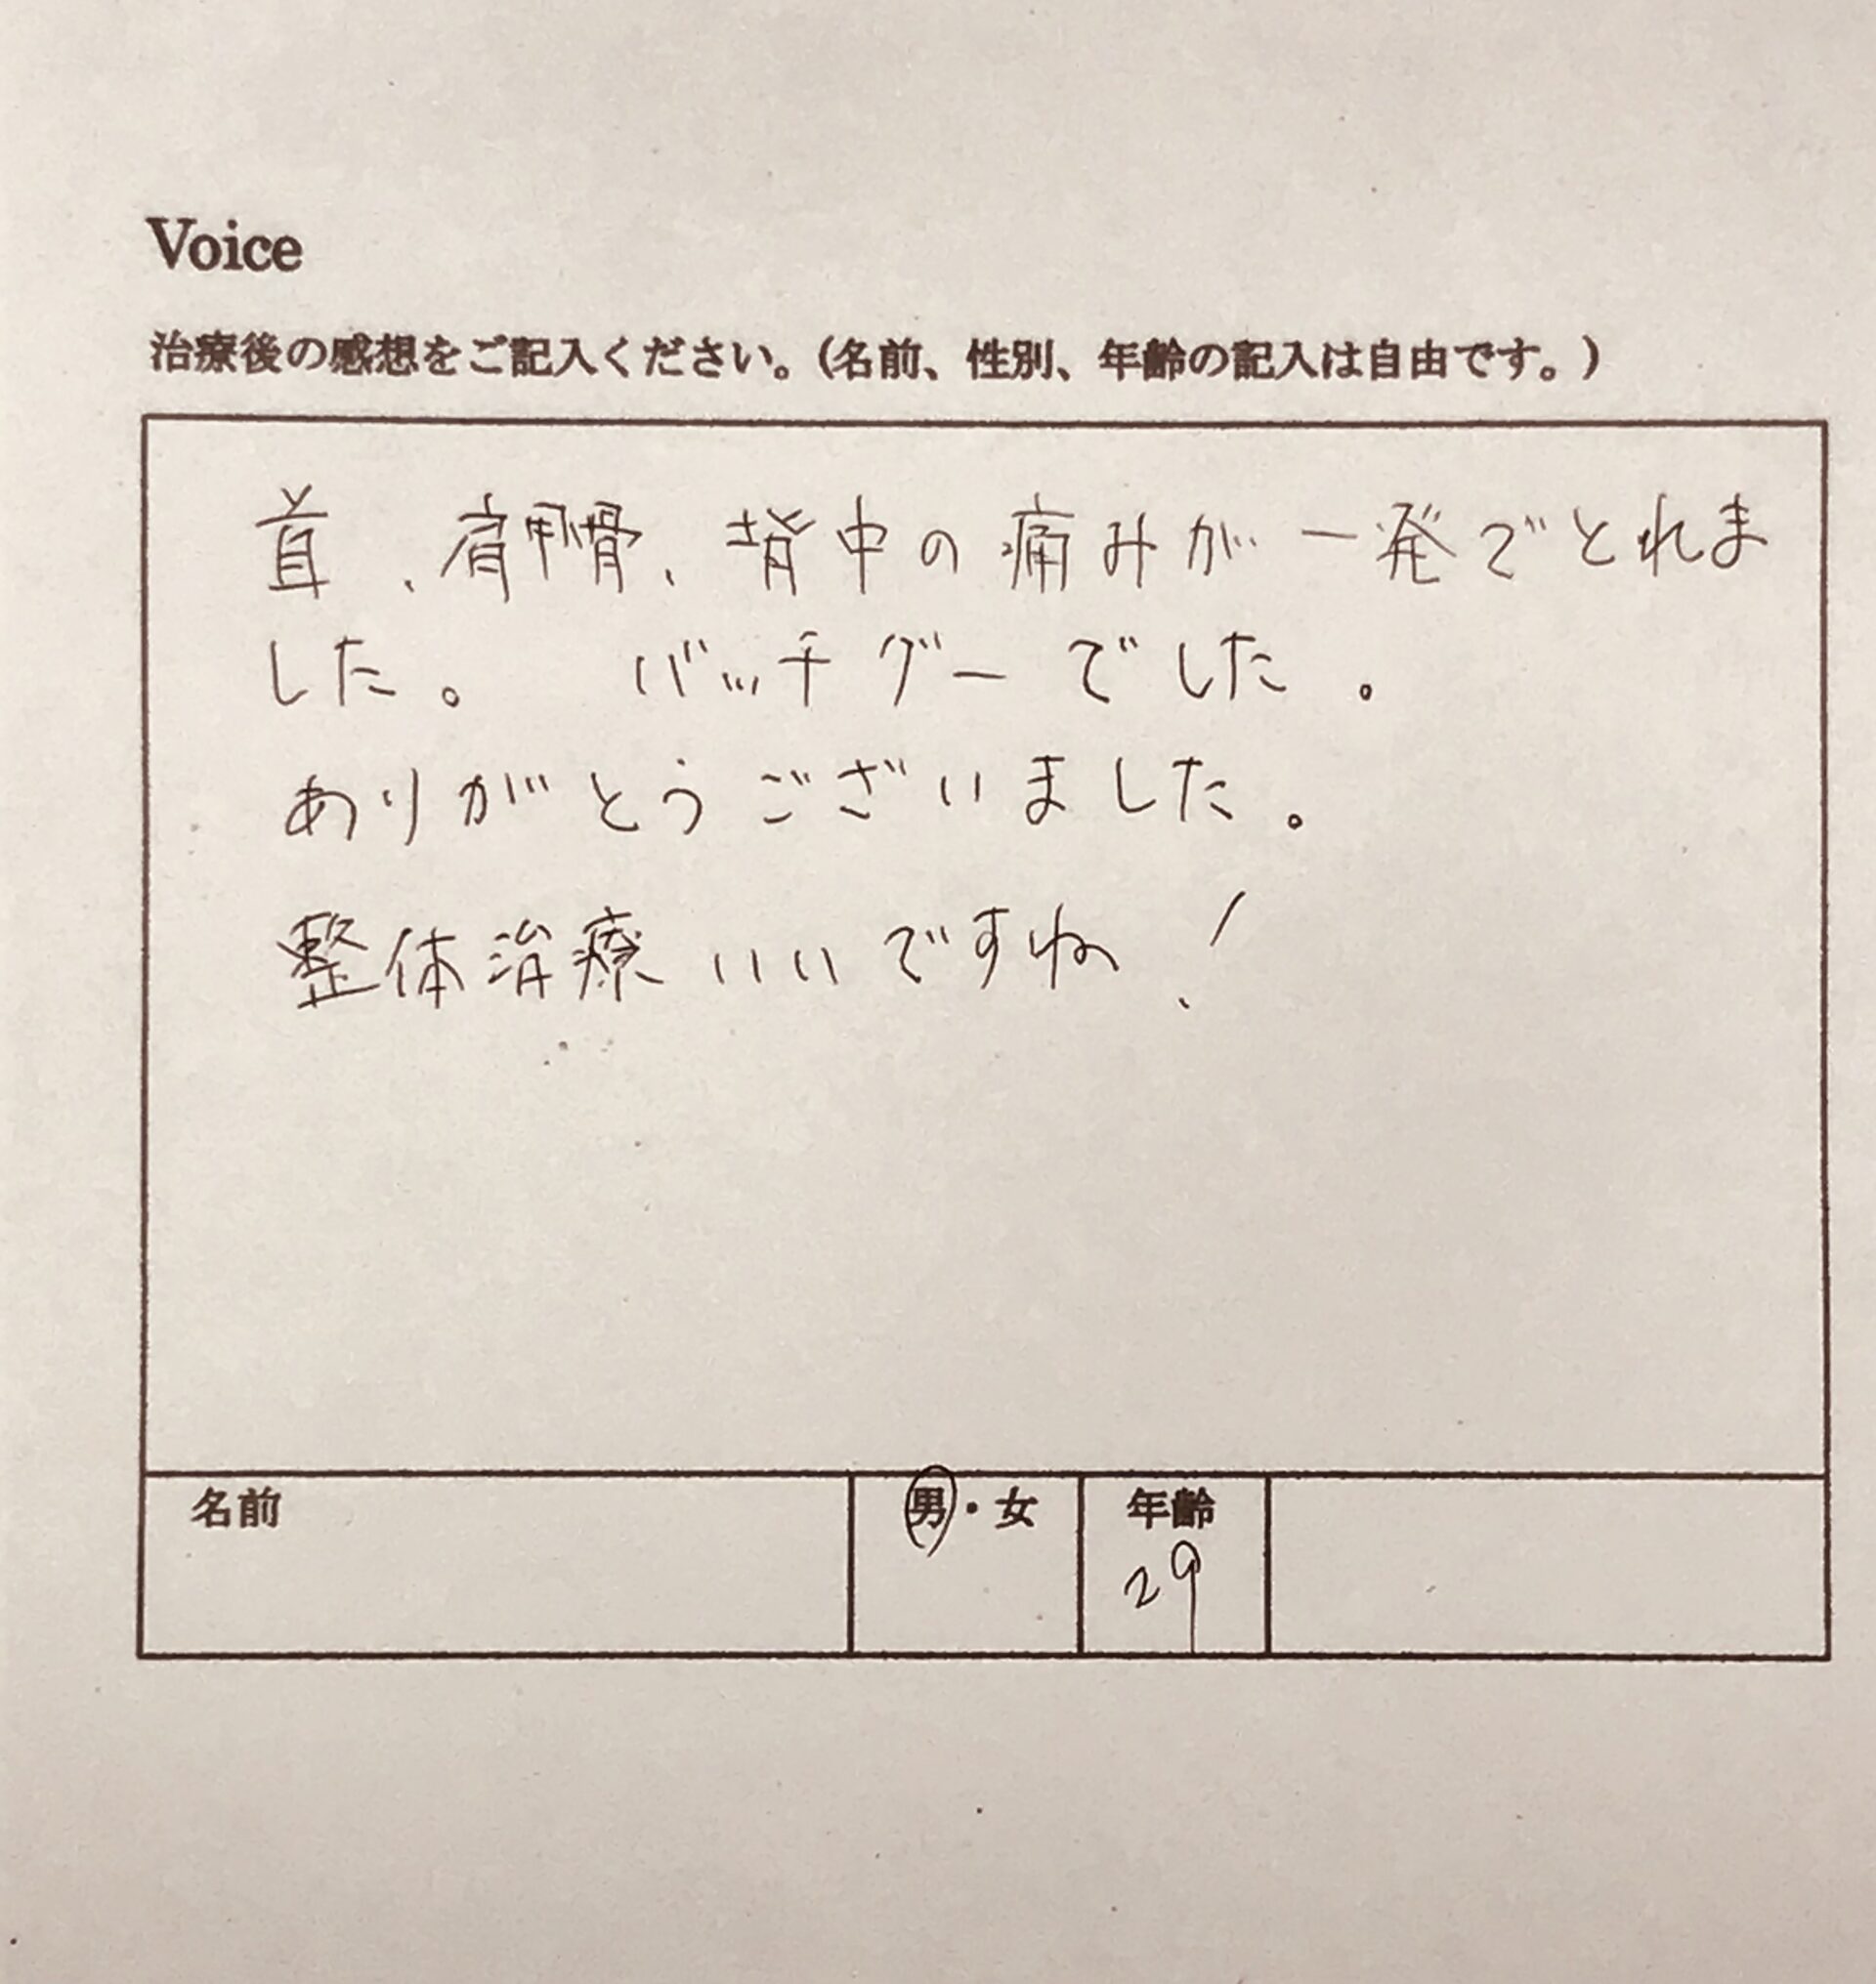 Voice
治療後の感想をご記入ください。(名前、性別、年齢の記入は自由です。)
首、肩甲骨、背中の痛みが一発でとれま
した。 バッチグーでした。
ありがとうございました。
整体治療いいですね!
名前 男・女 年齢
29